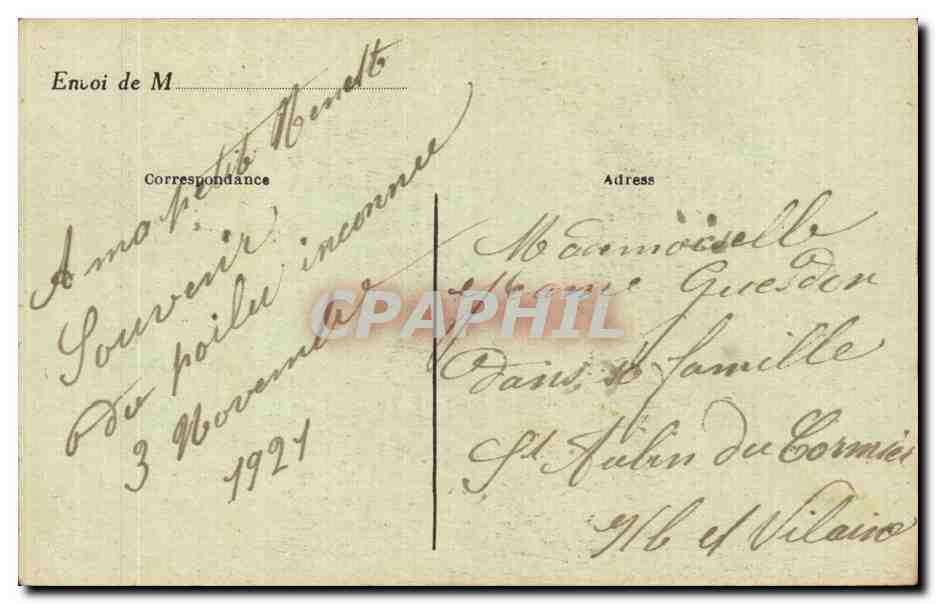 Envoi de M
Correspondance
A ma petite
Souvenir
du poilu inconnu
3 Novembre
1921
Adress
Mademoiselle
Guesdon
dans sa famille
St Aubin du Cormier
Ille et Vilaine
CPAPHIL